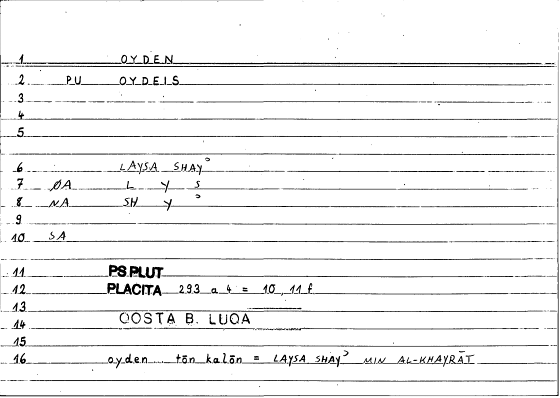 1 OYDEN
2 PU OYDEIS
3
4
5
6 LAYSA SHAYʾ
7 ØA L Y S
8 NA SH Y ʾ
9
10 SA
11 PS PLUT
12 PLACITA 293 a 4 = 10, 11 f
13
14 QOSTA B. LUQA
15
16 oyden tōn kalōn = LAYSA SHAYʾ MIN AL-KHAYRĀT